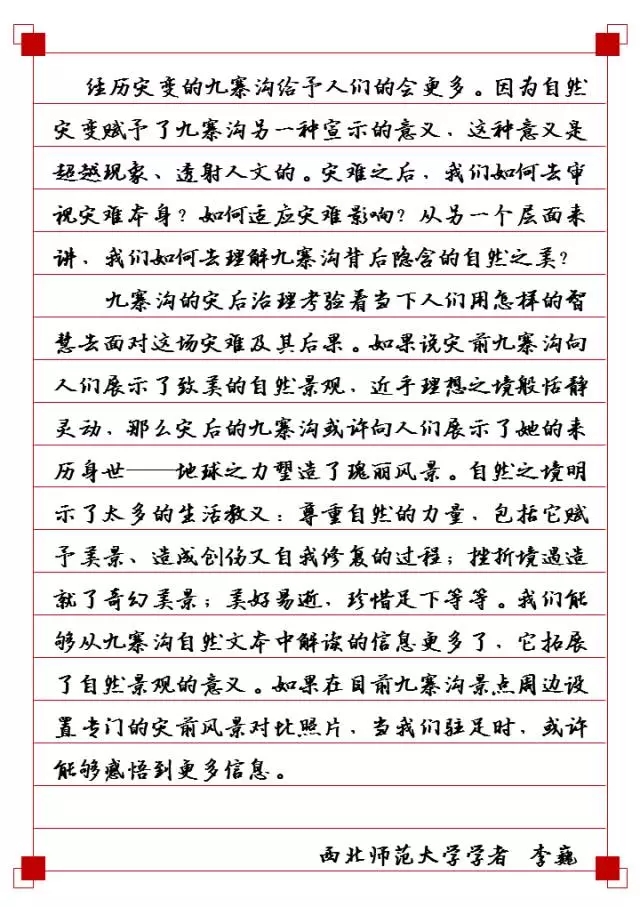 经历灾变的九寨沟给予人们的会更多。因为自然
灾变赋予了九寨沟另一种宣示的意义，这种意义是
超越现象、透射人文的。灾难之后，我们如何去审
视灾难本身？如何适应灾难影响？从另一个层面来
讲，我们如何去理解九寨沟背后隐含的自然之美？
九寨沟的灾后治理考验着当下人们用怎样的智
慧去面对这场灾难及其后果。如果说灾前九寨沟向
人们展示了致美的自然景观，近乎理想之境般恬静
灵动，那么灾后的九寨沟或许向人们展示了她的来
历身世——地球之力塑造了瑰丽风景。自然之境明
示了太多的生活教义：尊重自然的力量，包括它赋
予美景、造成创伤又自我修复的过程；挫折境遇造
就了奇幻美景；美好易逝，珍惜足下等等。我们能
够从九寨沟自然文本中解读的信息更多了，它拓展
了自然景观的意义。如果在目前九寨沟景点周边设
置专门的灾前风景对比照片，当我们驻足时，或许
能够感悟到更多信息。
西北师范大学学者 李巍